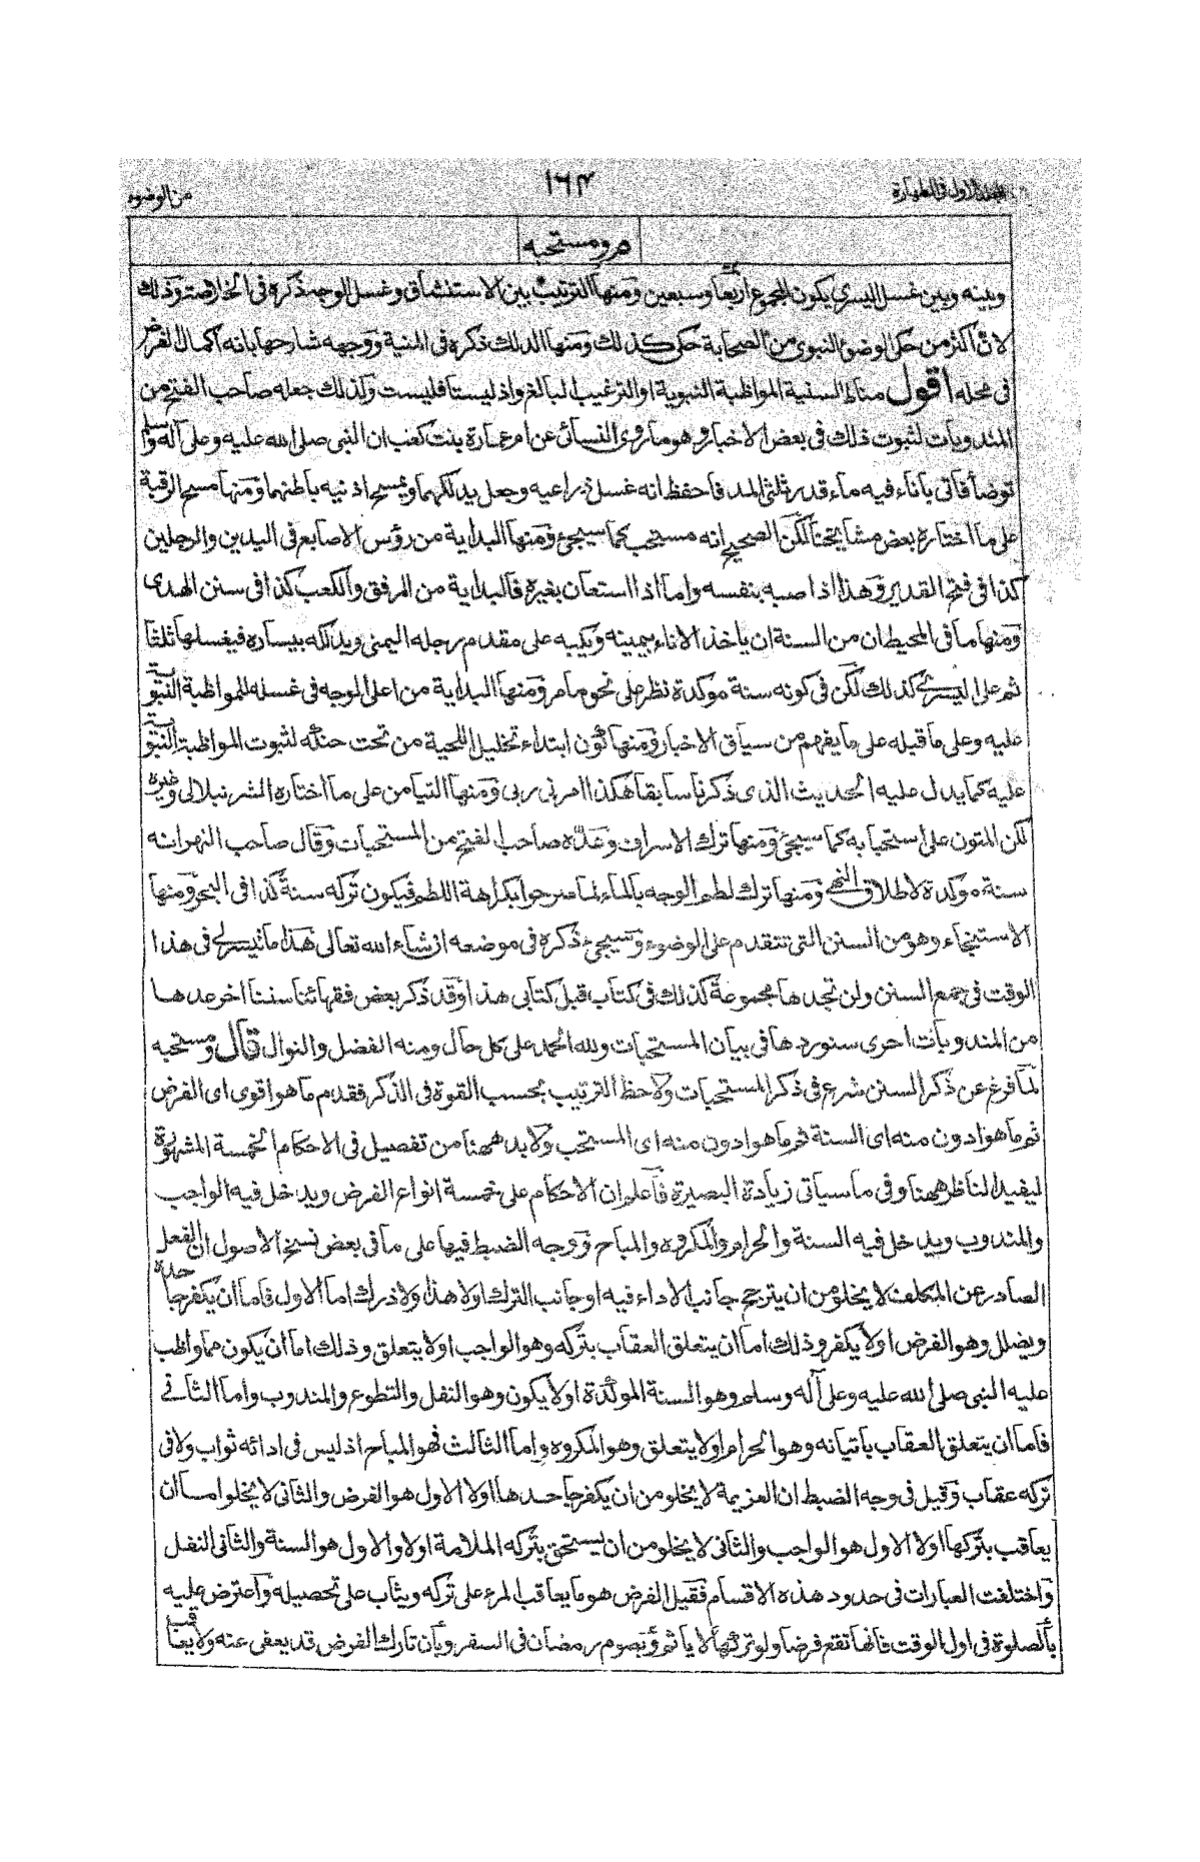 المجلد الاول فى الطهارة
١٦٤
من الوضوء
م ومستحبه
وبينه وبين غسل اليسرى يكون المجموع اربعا وسبعين ومنها الترتيب بين الاستنشاق وغسل الوجه ذكره فى الخلاصة وذلك
لان اكثر من حكى الوضوء النبوى من الصحابة حكى كذلك ومنها الدلك ذكره فى المنية ووجهه شارحها بانه اكمال الفرض
فى محله اقول مناط السنية المواظبة النبوية او الترغيب البالغ واذ ليستا فليست ولذلك جعله صاحب الفتح من
المندوبات لثبوت ذلك فى بعض الاخبار وهو ما روى النسائى عن ام عمارة بنت كعب ان النبى صلى الله عليه وعلى آله وسلم
توضأ فاتى باناء فيه ماء قدر ثلثى المد فاحفظ انه غسل ذراعيه وجعل يدلكهما ويمسح اذنيه باطنهما ومنها مسح الرقبة
على ما اختاره بعض مشايخنا لكن الصحيح انه مستحب كما سيجئ ومنها البداية من رؤس الاصابع فى اليدين والرجلين
كذا فى فتح القدير وهذا اذا صبه بنفسه واما اذا استعان بغيره فالبداية من المرفق والكعب كذا فى سنن الهدى
ومنها ما فى المحيط ان من السنة ان ياخذ الاناء بيمينه ويكبه على مقدم رجله اليمنى ويدلكه بيساره فيغسلها ثلثا
ثم على اليسرى كذلك لكن فى كونه سنة موكدة نظر على نحو ما مر ومنها البداية من اعلى الوجه فى غسله للمواظبة النبوية
عليه وعلى ما قبله على ما يفهم من سياق الاخبار ومنها كون ابتداء تخليل اللحية من تحت حنكه لثبوت المواظبة النبوية
عليه كما يدل عليه الحديث الذى ذكرنا سابقا هكذا امرنى ربى ومنها التيامن على ما اختاره الشرنبلالى وغيره
لكن المتون على استحبابه كما سيجئ ومنها ترك الاسراف وعده صاحب الفتح من المستحبات وقال صاحب النهر انه
سنة موكدة لاطلاق النهى ومنها ترك لطم الوجه بالماء لما صرحوا بكراهة اللطم فيكون تركه سنة كذا فى البحر ومنها
الاستنجاء وهو من السنن التى تتقدم على الوضوء وسيجئ ذكره فى موضعه ان شاء الله تعالى هذا ما تيسر لى فى هذا
الوقت فى جمع السنن ولن تجدها مجموعة كذلك فى كتاب قبل كتابى هذا وقد ذكر بعض فقهائنا سننا اخر عدها
من المندوبات احرى سنوردها فى بيان المستحبات ولله الحمد على كل حال ومنه الفضل والنوال قال ومستحبه
لما فرغ عن ذكر السنن شرع فى ذكر المستحبات ولاحظ الترتيب بحسب القوة فى الذكر فقدم ما هو اقوى اى الفرض
ثم ما هو ادون منه اى السنة ثم ما هو ادون منه اى المستحب ولا بد ههنا من تفصيل فى الاحكام الخمسة المشهورة
ليفيد الناظر ههنا وفى ما سياتى زيادة البصيرة فاعلم ان الاحكام على خمسة انواع الفرض ويدخل فيه الواجب
والمندوب ويدخل فيه السنة والحرام والمكروه والمباح ووجه الضبط فيها على ما فى بعض نسخ الاصول ان الفعل
الصادر عن المكلف لا يخلو من ان يترجح جانب الاداء فيه او جانب الترك اولا هذا ولا ذاك اما الاول فاما ان يكفر جاحده
ويضلل وهو الفرض اولا يكفر وذلك اما ان يتعلق العقاب بتركه وهو الواجب اولا يتعلق وذلك اما ان يكون مما واظب
عليه النبى صلى الله عليه وعلى آله وسلم وهو السنة الموكدة اولا يكون وهو النفل والتطوع والمندوب واما الثانى
فاما ان يتعلق العقاب باتيانه وهو الحرام اولا يتعلق وهو المكروه واما الثالث فهو المباح اذ ليس فى ادائه ثواب ولا فى
تركه عقاب وقيل فى وجه الضبط ان العزيمة لا يخلو من ان يكفر جاحدها اولا الاول هو الفرض والثانى لا يخلو اما ان
يعاقب بتركها اولا الاول هو الواجب والثانى لا يخلو من ان يستحق بتركه الملامة اولا والاول هو السنة والثانى النفل
واختلفت العبارات فى حدود هذه الاقسام فقيل الفرض هو ما يعاقب المرء على تركه ويثاب على تحصيله واعترض عليه
بالصلوة فى اول الوقت فانها تقع فرضا ولو تركها لا ياثم وبصوم رمضان فى السفر وبان تارك الفرض قد يعفى عنه ولا يعاقب